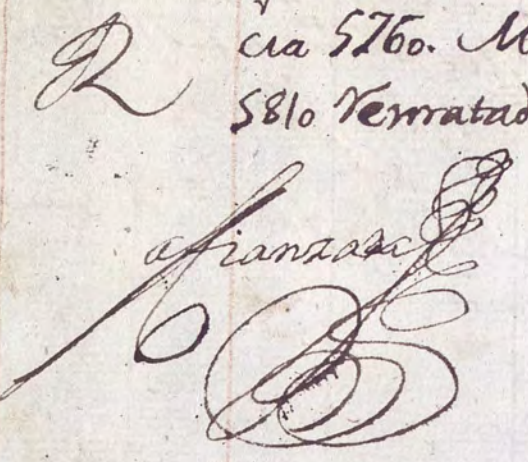 R cia 5760. M
5810 Vemratad
afianzada